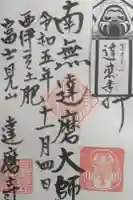 南無達磨大師
令和五年十一月四日
西伊豆土肥
富士見山
達磨寺
達磨寺